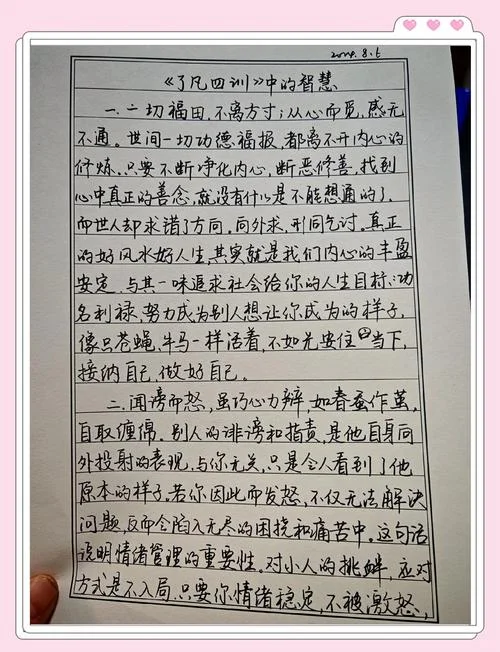 2024.8.6
《了凡四训》中的智慧
一、一切福田,不离方寸;从心而觅,感无
不通。世间一切功德福报,都离不开内心的
修炼。只要不断净化内心,断恶修善,找到
心中真正的善念,就没有什么是不能想通的了。
而世人却求错了方向。向外求,形同乞讨。真正
的好风水好人生,其实就是我们内心的丰盈
安定。与其一味追求社会给你的人生目标:功
名利禄,努力成为别人想让你成为的样子,
像只苍蝇、牛马一样活着,不如先安住当下,
接纳自己,做好自己。
二、闻谤而怒,虽巧心力辩,如春蚕作茧,
自取缠绵。别人的诽谤和指责,是他自身向
外投射的表现,与你无关,只是令人看到了他
原本的样子。若你因此而发怒,不仅无法解决
问题,反而会陷入无尽的困挠和痛苦中。这句话
说明情绪管理的重要性。对小人的挑衅,应对
方式是不入局。只要你情绪稳定,不被激怒,